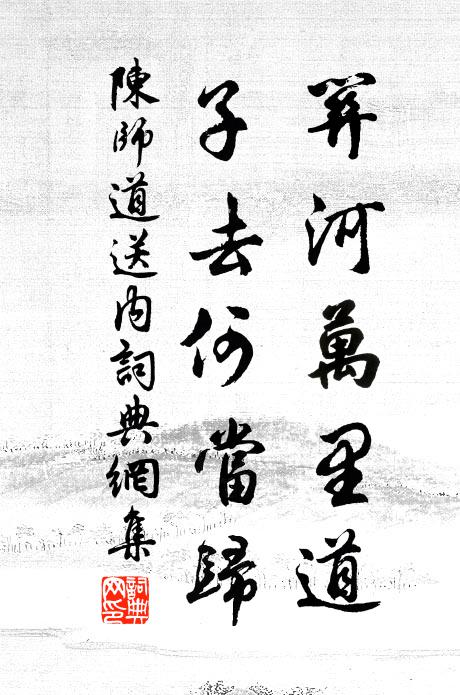 關河萬里道
子去何當歸
陳師道送內詞典網集
詞典网印